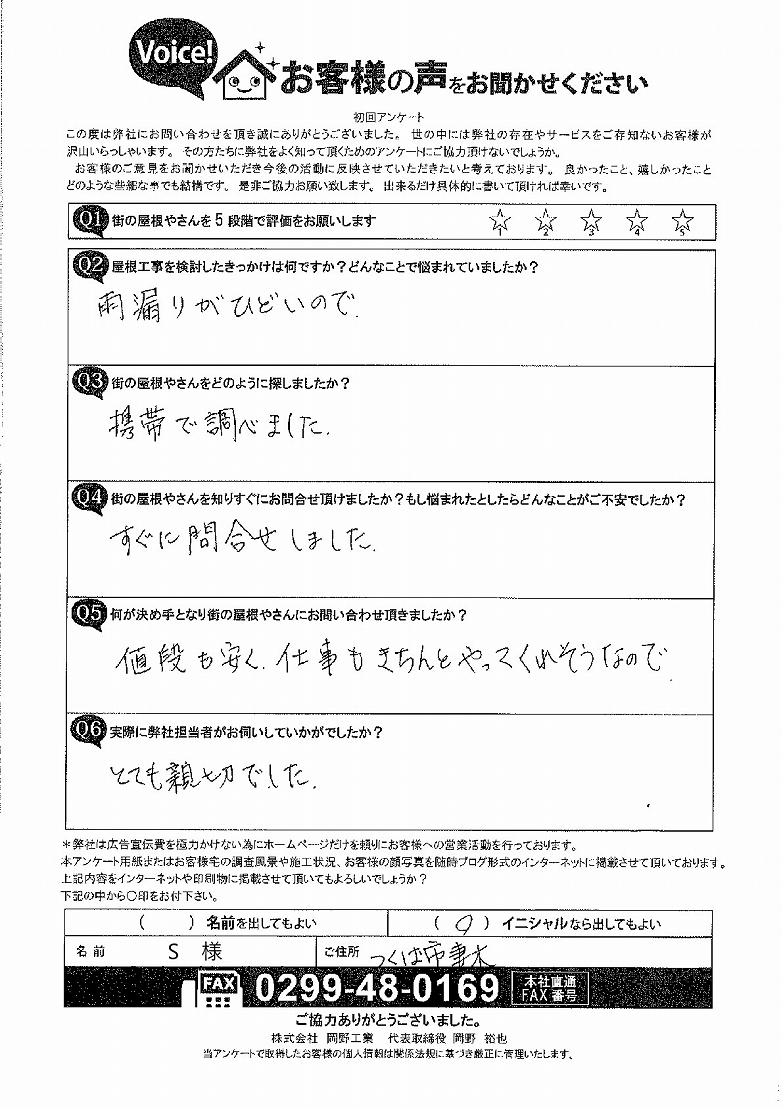 Voice! お客様の声をお聞かせください
初回アンケート
この度は弊社にお問い合わせを頂き誠にありがとうございました。 世の中には弊社の存在やサービスをご存知ないお客様が
沢山いらっしゃいます。 その方たちに弊社をよく知って頂くためのアンケートにご協力頂けないでしょうか。
お客様のご意見をお聞かせいただき今後の活動に反映させていただきたいと考えております。 良かったこと、嬉しかったこと
どのような些細な事でも結構です。 是非ご協力お願い致します。 出来るだけ具体的に書いて頂ければ幸いです。
Q1 街の屋根やさんを5段階で評価をお願いします ☆1 ☆2 ☆3 ☆4 ☆5
Q2 屋根工事を検討したきっかけは何ですか?どんなことで悩まれていましたか?
雨漏りがひどいので.
Q3 街の屋根やさんをどのように探しましたか?
携帯で調べました.
Q4 街の屋根やさんを知りすぐにお問合せ頂けましたか?もし悩まれたとしたらどんなことがご不安でしたか?
すぐに問合せしました.
Q5 何が決め手となり街の屋根やさんにお問い合わせ頂きましたか?
値段も安く.仕事もきちんとやってくれそうなので.
Q6 実際に弊社担当者がお伺いしていかがでしたか?
とても親切でした.
*弊社は広告宣伝費を極力かけない為にホームページだけを頼りにお客様への営業活動を行っております。
本アンケート用紙またはお客様宅の調査風景や施工状況、お客様の顔写真を随時ブログ形式のインターネットに掲載させて頂いております。
上記内容をインターネットや印刷物に掲載させて頂いてもよろしいでしょうか?
下記の中から〇印をお付下さい。
( ) 名前を出してもよい (○) イニシャルなら出してもよい
名前 S 様 ご住所 つくば市妻木
FAX 0299-48-0169 本社直通 FAX番号
ご協力ありがとうございました。
株式会社 岡野工業 代表取締役 岡野 裕也
当アンケートで取得したお客様の個人情報は関係法規に基づき厳正に管理いたします、